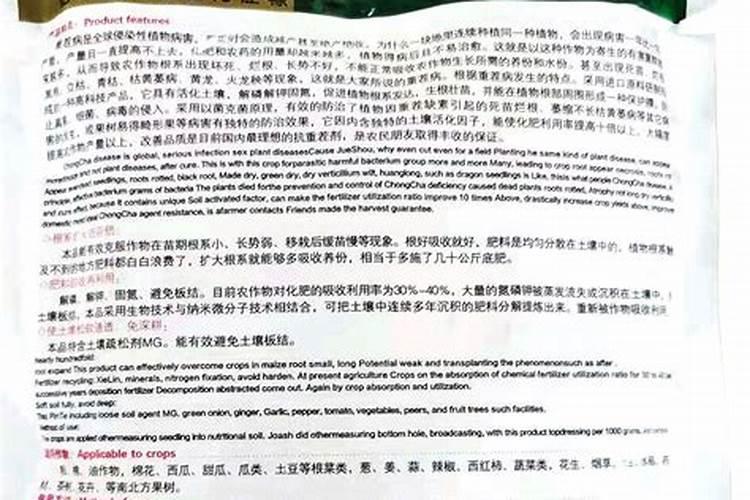 产品特点: Product features
重茬病是全球侵染性植物病害。 为什么一块地里连续种植同一种植物，会出现病害一年比一年
严重，产量日一直提高不上去。化肥和农药的用量却越来越多，植物得病后且不易治愈。这就是以这种作物为寄生的有害菌群
越多，从而导致农作物根系出现坏死、烂根、长势不好，不能正常吸收农作物生长所需的养份和水份。甚至出现死苗、烂苗
黑根、立枯、青枯、枯黄萎病、黄龙、火龙秧等现象，这就是大家所说的重茬病。根据重茬病发生的特点。采用进口原料研制
成的一种高科技产品，它具有活化土壤、解磷解钾固氮，促进植物根系发达，生根壮苗，并能在植物根部周围形成一种保护膜，防
止真菌、细菌、病毒的侵入。采用以菌克菌原理，有效的防治了植物因重茬缺素引起的死苗烂根、萎缩不长枯黄萎病等
的发生，或果树易得畸形果等病害有独特的防治效果，它因内含独特的土壤活化因子，能使化肥利用率提高十倍以上，大幅度
提高作物产量以上，改善品质是目前国内最理想的抗重茬剂，是农民朋友取得丰收的保证。
ChongCha disease is global, serious infection sex plant diseasesCause JueShou, why even cut even for a field Planting he same kind of plant disease, can appear
and not plant diseases, after cure. This is with this crop forparasitic harmful bacterium group more and more Many, leading to crop root appear necrosis, roots
Appear wanted seedlings, roots rotted, black root, Made dry, green dry, dry verticillium wilt, huanglong, such as dragon seedlings is Like, this is what people ChongCha disease,
principle, efectve bacterium grams of bacteria The plants died forthe prevention and control of ChongCha deficiency caused dead plants roots rotted, Atrophy not long dry
and cure efect, because it contains unique Soil activated factor, can make the fertilizer utilization ratio improve 10 times Above, drastically increase crop yields above, improve
domestic ideal ChongCha agent resistance, is afarmer contacts Friends made the harvest guarantee.
本品能有效克服作物在苗期根系小、长势弱、移栽后缓苗慢等现象。根好吸收就好，肥料是均匀分散在土壤中的，植物根系触
及不到的地方肥料都白白浪费了，扩大根系就能够多吸收养份，相当于多施了几十公斤底肥。
肥料回收再利用:
解磷、解钾、固氮、避免板结。目前农作物对化肥的吸收利用率为30%-40%，大量的氮磷钾被蒸发流失或沉积在土壤中，
土壤板结。本品采用生物技术与纳米微分子技术相结合，可把土壤中连续多年沉积的肥料分解提炼出来。重新被作物吸收利用
使土壤松软通透、免深耕:
本品符含土壤疏松剂MG。能有效避免土壤板结。
Nearly hundredfold:
root expand This product can effectively overcome crops in maize root small, long Potential weak and transplanting the phenomenonsuch as after .
Fertilizer recycling: XieLin, minerals, nitrogen fixation, avoid harden. At present agriculture Crops on the absorption of chemical fertilizer utilization ratio for 30
successive years deposition fertilizer Decomposition abstracted come out. Again by crop absorption and utilization.
Soft soil fully, avoid deep:
This, PinTe including loose soil agent MG, green onion, ginger, Garlic, pepper, tomato, vegetables, peers, and fruit trees such facilities.
Method of use:
The crops are applied othermeasuring seedling into nutritional soil. Joash did othermeasuring bottom hole, broadcasting, with this product topdressing per 1000 grams,
适用作物: Applicable to crops
粮、棉、油作物，棉花、西瓜、甜瓜、瓜类、土豆等根菜类，葱、姜、蒜、辣椒、西红柿、蔬菜类，花生、烟草、
材、茶树、花卉、等南北方果树。